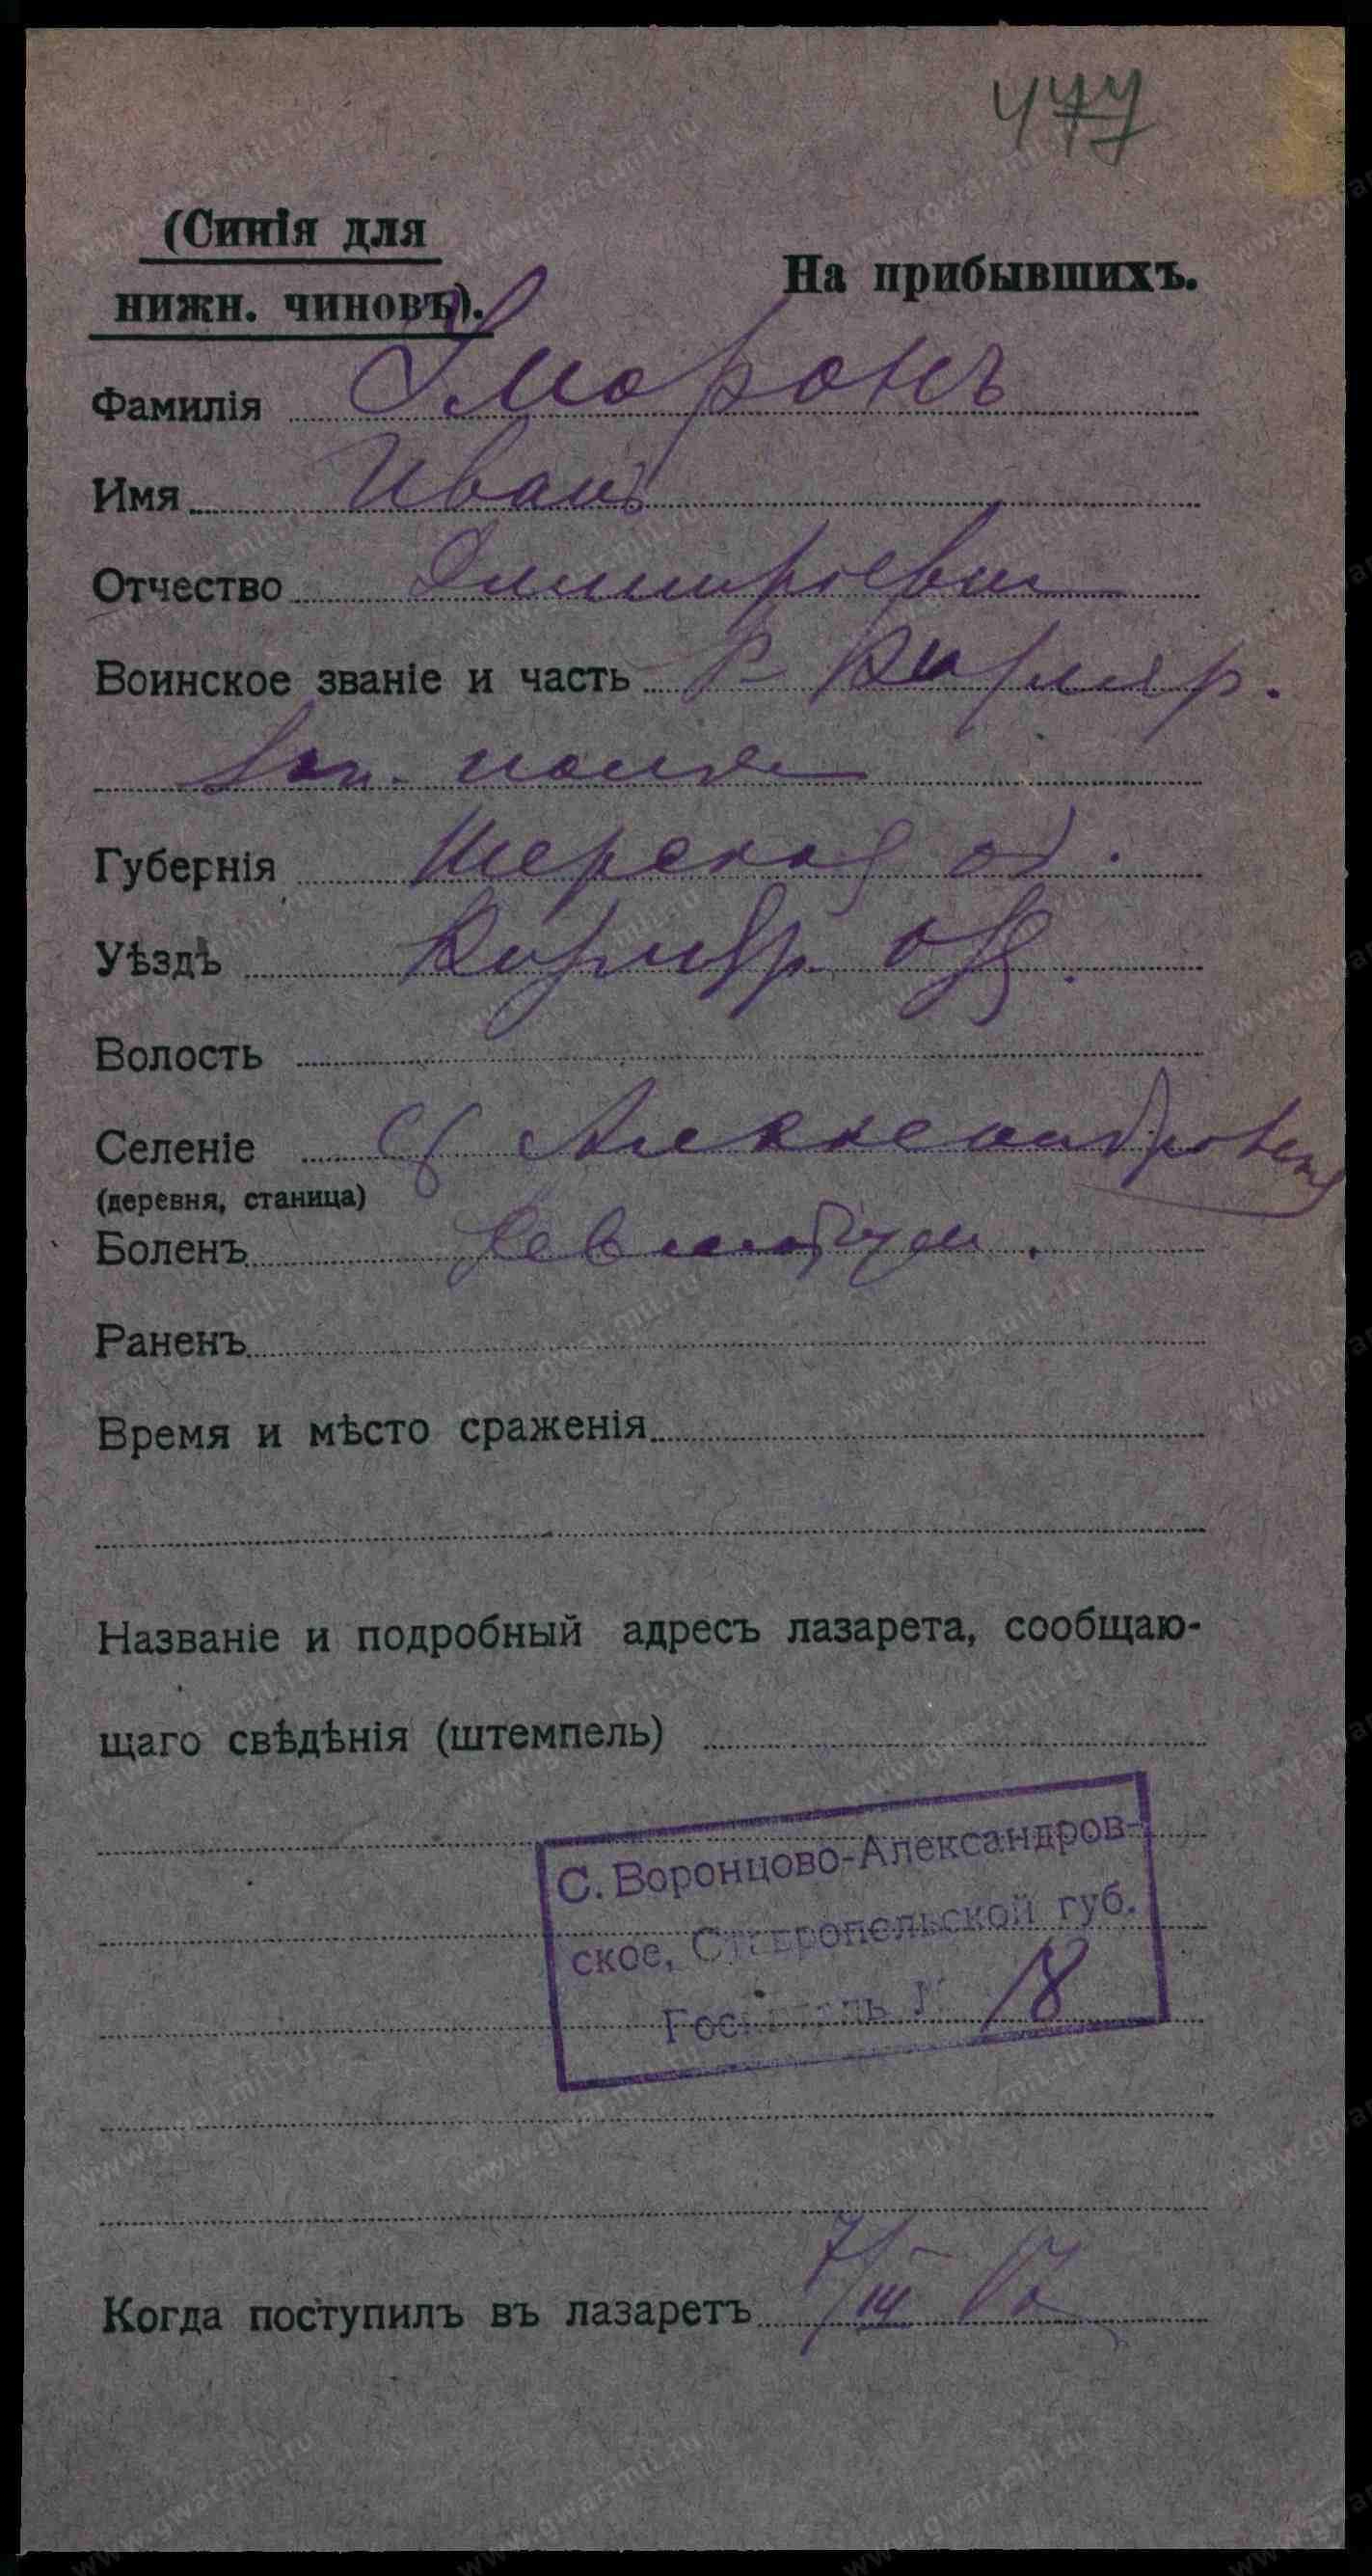 477
(Синія для
нижн. чиновъ).
На прибывшихъ.
Фамилія Сморонъ
Имя Иванъ
Отчество Дмитріевич
Воинское званіе и часть Р-
Губернія Терская об.
Уѣздъ
Волость
Селеніе Александровск
(деревня, станица)
Боленъ
Раненъ
Время и мѣсто сраженія
Названіе и подробный адресъ лазарета, сообщаю-
щаго свѣдѣнія (штемпель)
С. Воронцово-Александров-
ское, Ставропольской губ.
Госпиталь № 18
Когда поступилъ въ лазаретъ 7/III